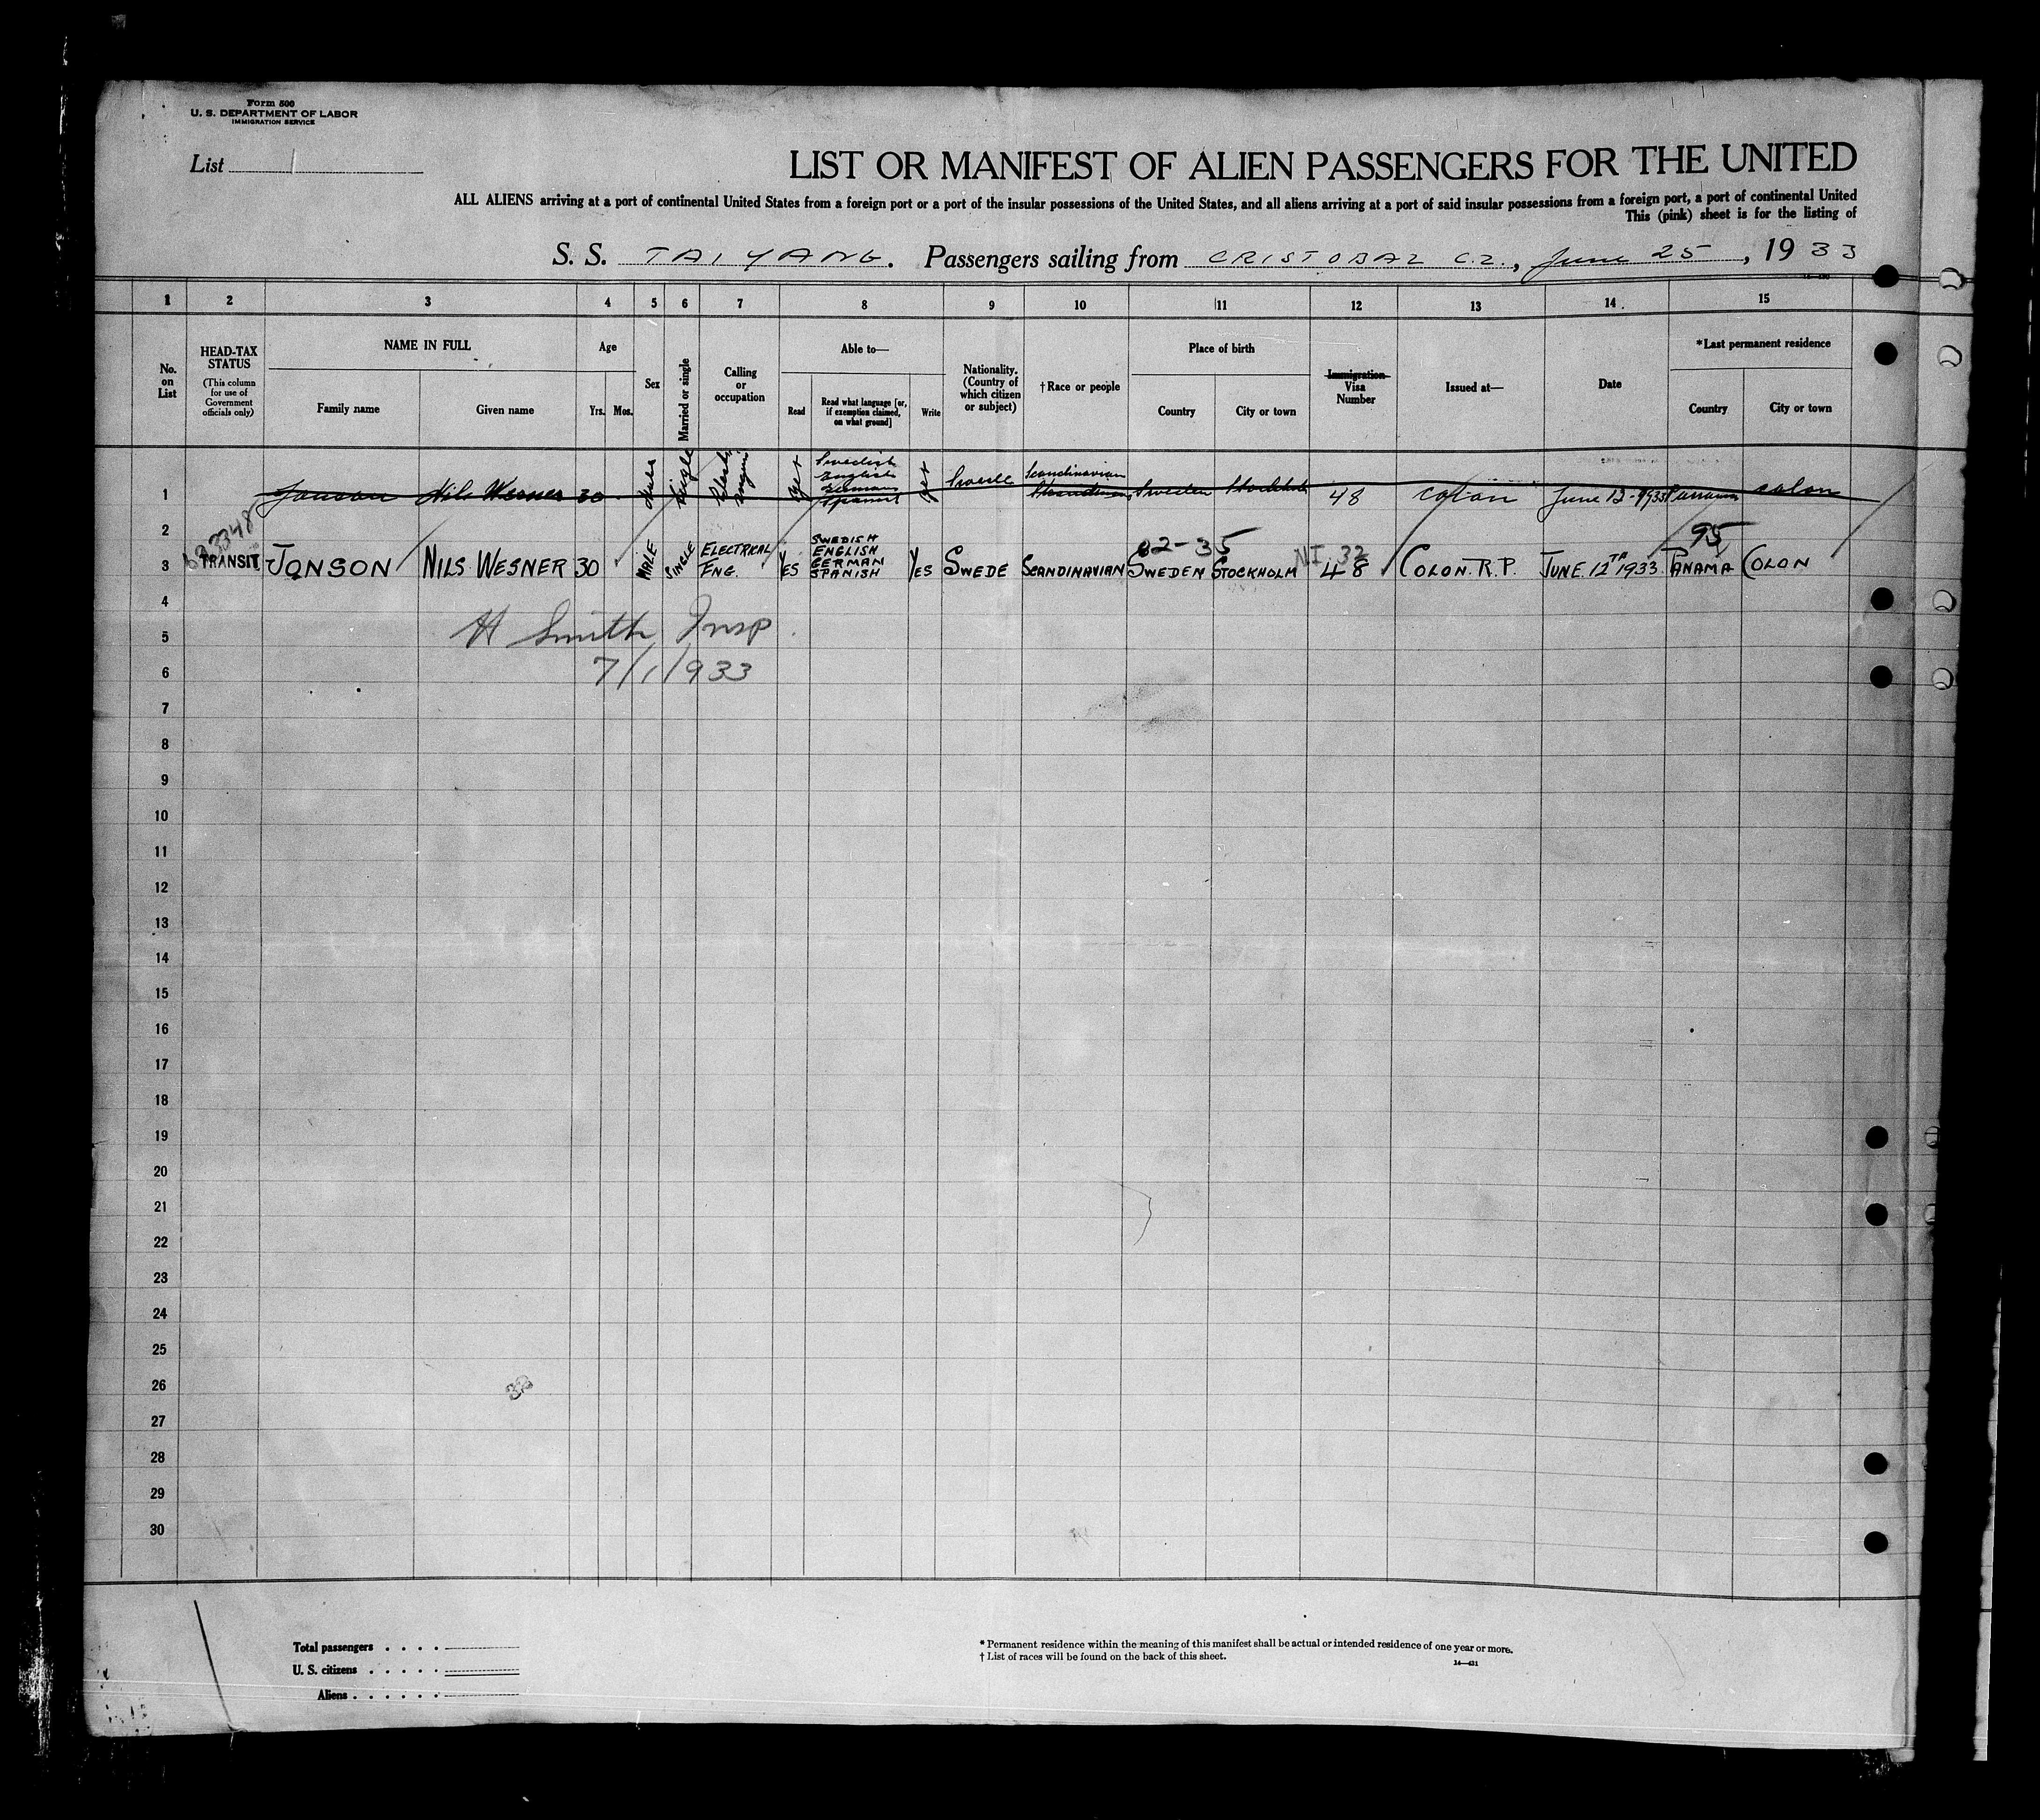 Form 500
U. S. DEPARTMENT OF LABOR
IMMIGRATION SERVICE
List 1
LIST OR MANIFEST OF ALIEN PASSENGERS FOR THE UNITED
ALL ALIENS arriving at a port of continental United States from a foreign port or a port of the insular possessions of the United States, and all aliens arriving at a port of said insular possessions from a foreign port, a port of continental United
This (pink) sheet is for the listing of
S. S. TAI YANG. Passengers sailing from CRISTOBAL C.Z., June 25, 1933
1 2 3 4 5 6 7 8 9 10 11 12 13 14 15
No. on List
HEAD-TAX STATUS
(This column for use of Government officials only)
NAME IN FULL
Family name Given name
Age
Yrs. Mos.
Sex
Married or single
Calling or occupation
Able to—
Read
Read what language [or, if exemption claimed, on what ground]
Write
Nationality. (Country of which citizen or subject)
†Race or people
Place of birth
Country City or town
Immigration Visa Number
Issued at—
Date
*Last permanent residence
Country City or town
1 Jonson Nils Wesner 30 Male Single Elect. Engin Yes Swedish English German Spanish Yes Swede Scandinavian Sweden Stockholm 48 Colon June 12-1933 Panama Colon
2 82-35 95
683348
3 TRANSIT JONSON NILS WESNER 30 MALE SINGLE ELECTRICAL ENG. YES SWEDISH ENGLISH GERMAN SPANISH YES SWEDE SCANDINAVIAN SWEDEN STOCKHOLM NI 32 48 COLON. R.P. JUNE 12TH 1933 PANAMA COLON
4
H Smith Insp.
5
7/1/1933
6
7
8
9
10
11
12
13
14
15
16
17
18
19
20
21
22
23
24
25
26
27
28
29
30
Total passengers . . . .
U. S. citizens . . . . .
Aliens . . . . . .
* Permanent residence within the meaning of this manifest shall be actual or intended residence of one year or more.
† List of races will be found on the back of this sheet.
14—431